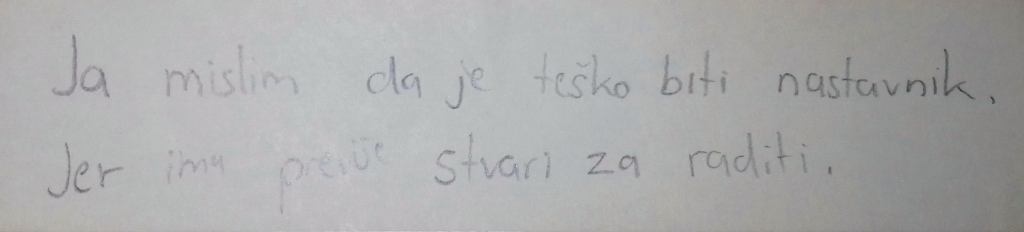 Ja mislim da je teško biti nastavnik.
Jer ima previše stvari za raditi.